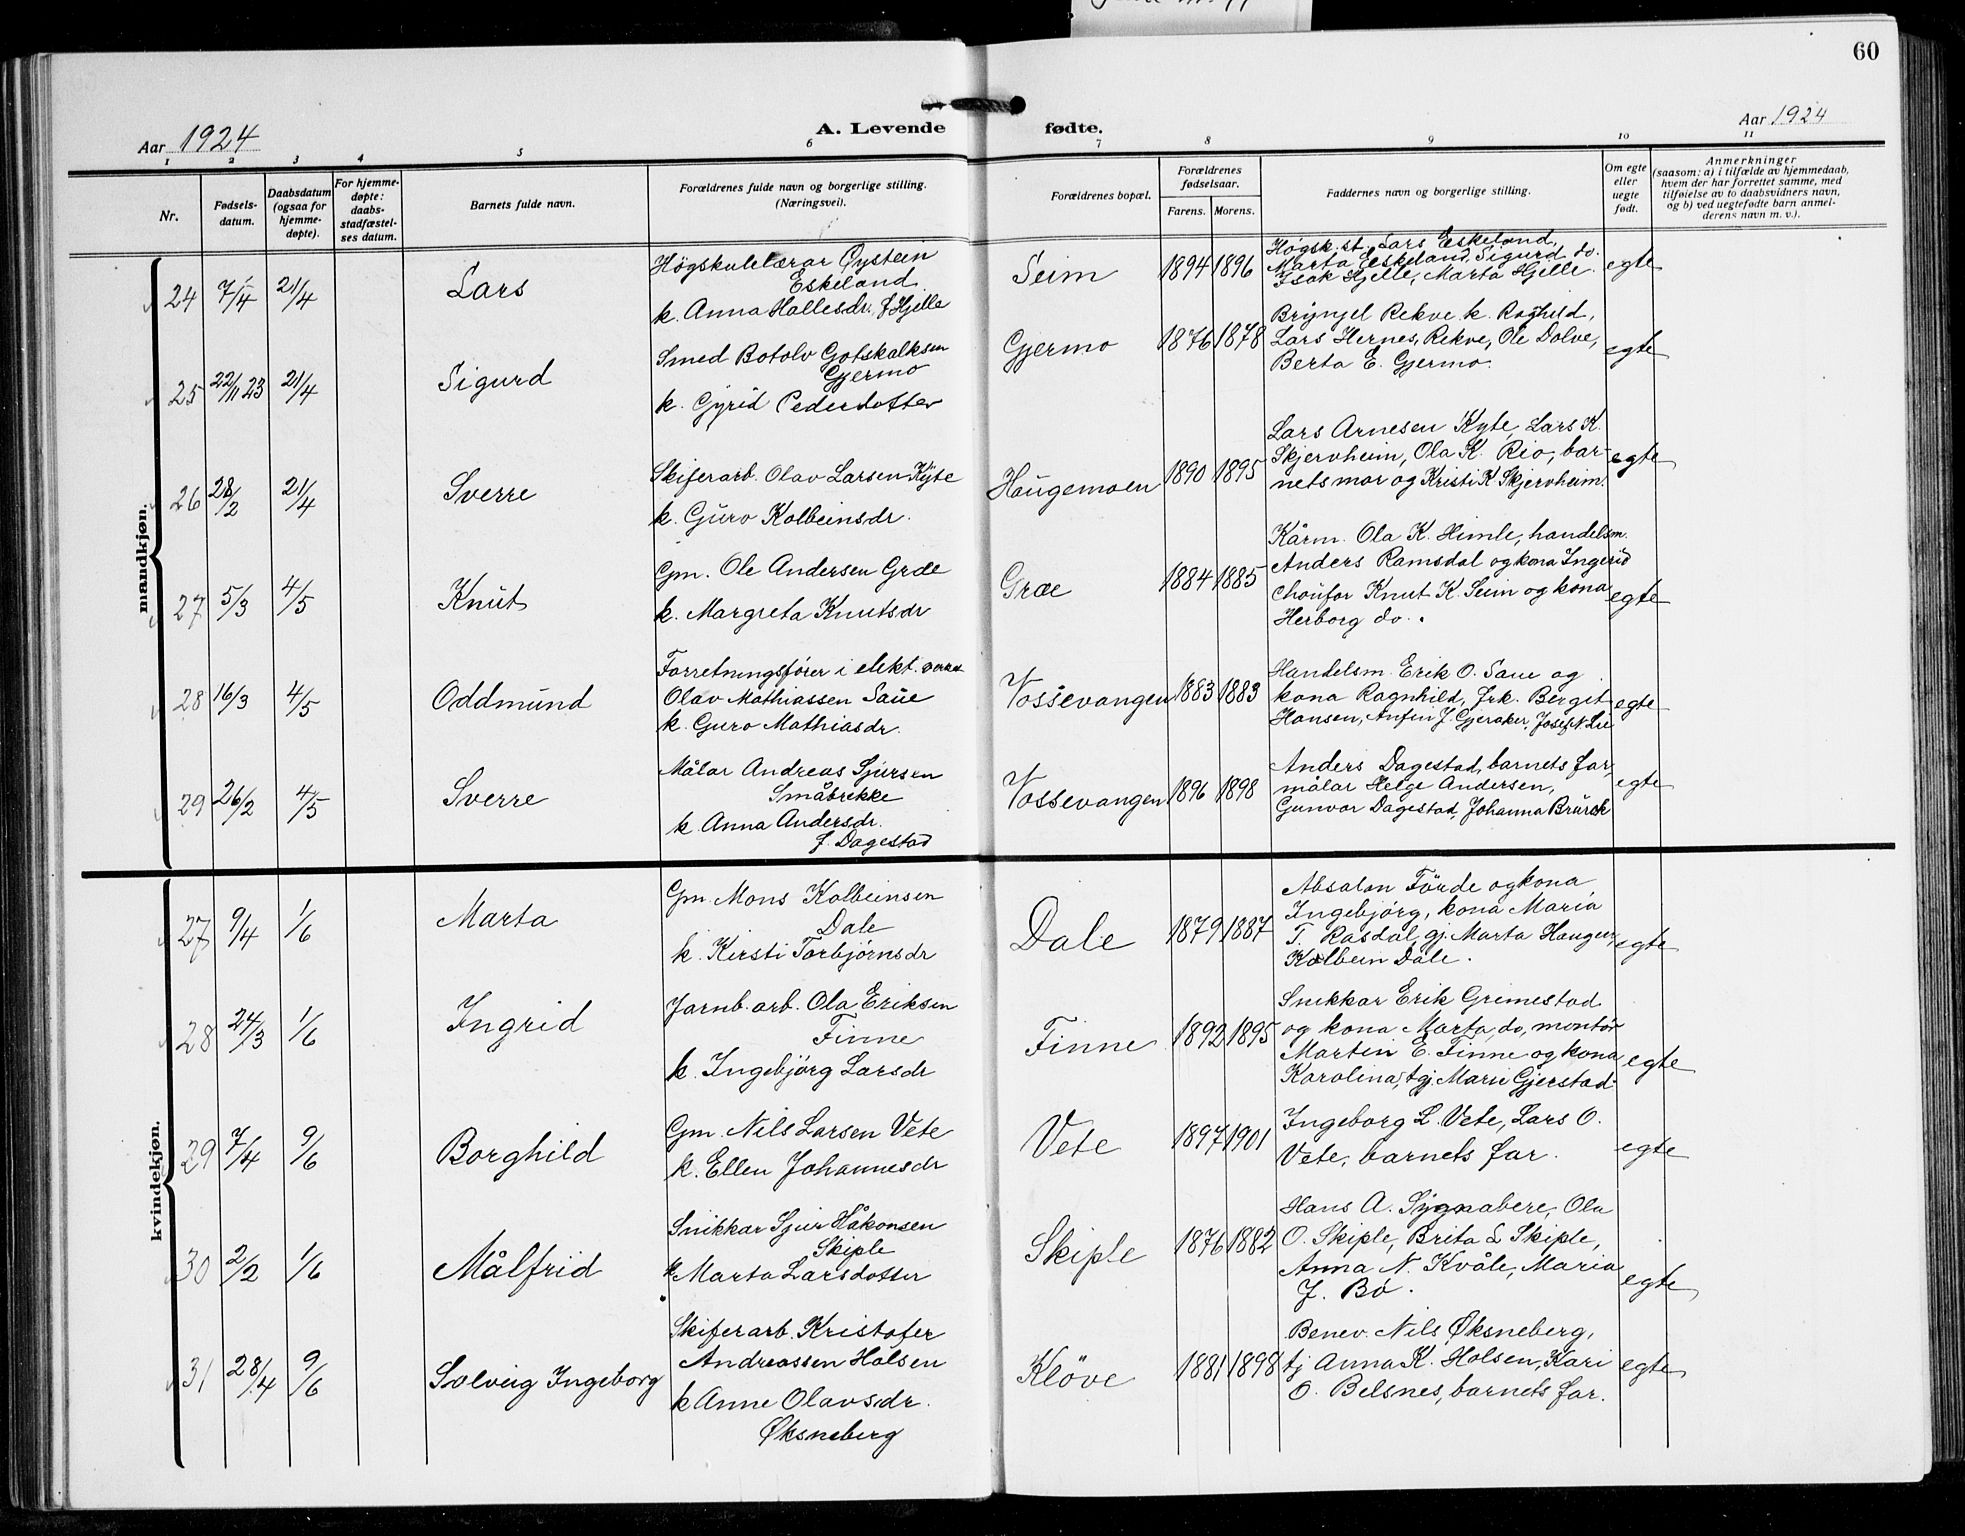 60
Aar 1924
A. Levende
fødte.
Aar 1924
1 2 3 4 5 6 7 8 9 10 11
Nr.
Fødsels-
datum.
Daabsdatum
(ogsaa for
hjemme-
døpte).
For hjemme-
døpte:
daabs-
stadfæstel-
ses datum.
Barnets fulde navn.
Forældrenes fulde navn og borgerlige stilling.
(Næringsvei).
Forældrenes bopæl.
Forældrenes
fødselsaar.
Farens. Morens.
Faddernes navn og borgerlige stilling.
Om egte
eller
uegte
født.
Anmerkninger
(saasom: a) i tilfælde av hjemmedaab,
hvem der har forrettet samme, med
tilføielse av to daabsvidners navn,
og b) ved uegtefødte barn anmel-
derens navn m. v.).
mandkjøn.
24 7/4 21/4 Lars
Høgskulelærar Øystein
Eskeland
k. Anna Hallesdr. f Hjelle
Seim 1894 1896
Høgsk.st. Lars Eskeland,
Marta Eskeland, Sigurd do.
Isak Hjelle, Marta Hjelle.
egte
25 22/11 23 21/4 Sigurd
Smed Botolv Gotskalksen
Gjermo
k. Gyrid Pedersdotter
Gjermo 1876 1878
Brynjel Rekve k. Raghild,
Lars Hernes, Rekve, Ole Dolve,
Berta E. Gjermo.
egte
26 28/2 21/4 Sverre
Skiferarb. Olav Larsen Kyte
k. Guro Kolbeinsdr.
Haugemoen 1890 1895
Lars Arnesen Kyte, Lars K.
Skjervheim, Ola K. Rio, bar-
nets mor og Kristi K Skjervheim.
egte
27 5/3 4/5 Knut
Gm. Ole Andersen Græ
k. Margreta Knutsdr
Græ 1884 1885
Kårm. Ola K. Himle, handelsm.
Anders Ramsdal og kona Ingerid
choufør Knut K. Seim og kona
Herborg do.
egte
28 16/3 4/5 Oddmund
Forretningsfører i elekt. verket
Olav Mathiassen Saue
k. Guro Mathiasdr.
Vossevangen 1883 1883
Handelsm. Erik O. Saue og
kona Ragnhild, frk. Bergit
Hansen, Anfin J. Gjeraker, Josef N. Lie
egte
29 26/2 4/5 Sverre
Målar Andreas Sjursen
Småbrekke
k. Anna Andersdr.
f. Dagestad
Vossevangen 1896 1898
Anders Dagestad, barnets far,
målar Helge Andersen,
Gunvor Dagestad, Johanna
egte
kvindekjøn.
27 9/4 1/6 Marta
Gm. Mons Kolbeinsen
Dale
k. Kirsti Torbjørnsdr
Dale 1879 1887
Absalon Förde og kona
Ingebjørg, kona Maria
T. Rasdal, gj. Marta Haugen,
Kolbein Dale.
egte
28 24/3 1/6 Ingrid
Jarnb. arb. Ola Eriksen
Finne
k. Ingebjørg Larsdr
Finne 1892 1895
Snikkar Erik Grimestad
og kona Marta do, montör
Martin E. Finne og kona
Karolina, tgj. Mari Gjerstad.
egte
29 7/4 9/6 Borghild
Gm. Nils Larsen Vete
k. Ellen Johannesdr
Vete 1897 1901
Ingeborg L. Vete, Lars O.
Vete, barnets far.
egte
30 2/2 1/6 Målfrid
Snikkar Sjur Håkonsen
Skiple
k. Marta Larsdotter
Skiple 1876 1882
Hans A. Sygnabere, Ola
O. Skiple, Brita L Skiple,
Anna N. Kvåle, Maria
J. Bö.
egte
31 28/4 9/6 Solveig Ingeborg
Skiferarb. Kristofer
Andreassen Holsen
k Anne Olavsdr.
Øksneberg
Klöve 1881 1898
Benev. Nils Øksneberg,
tj Anna K. Holsen, Kari
O. Belsnes, barnets far.
egte